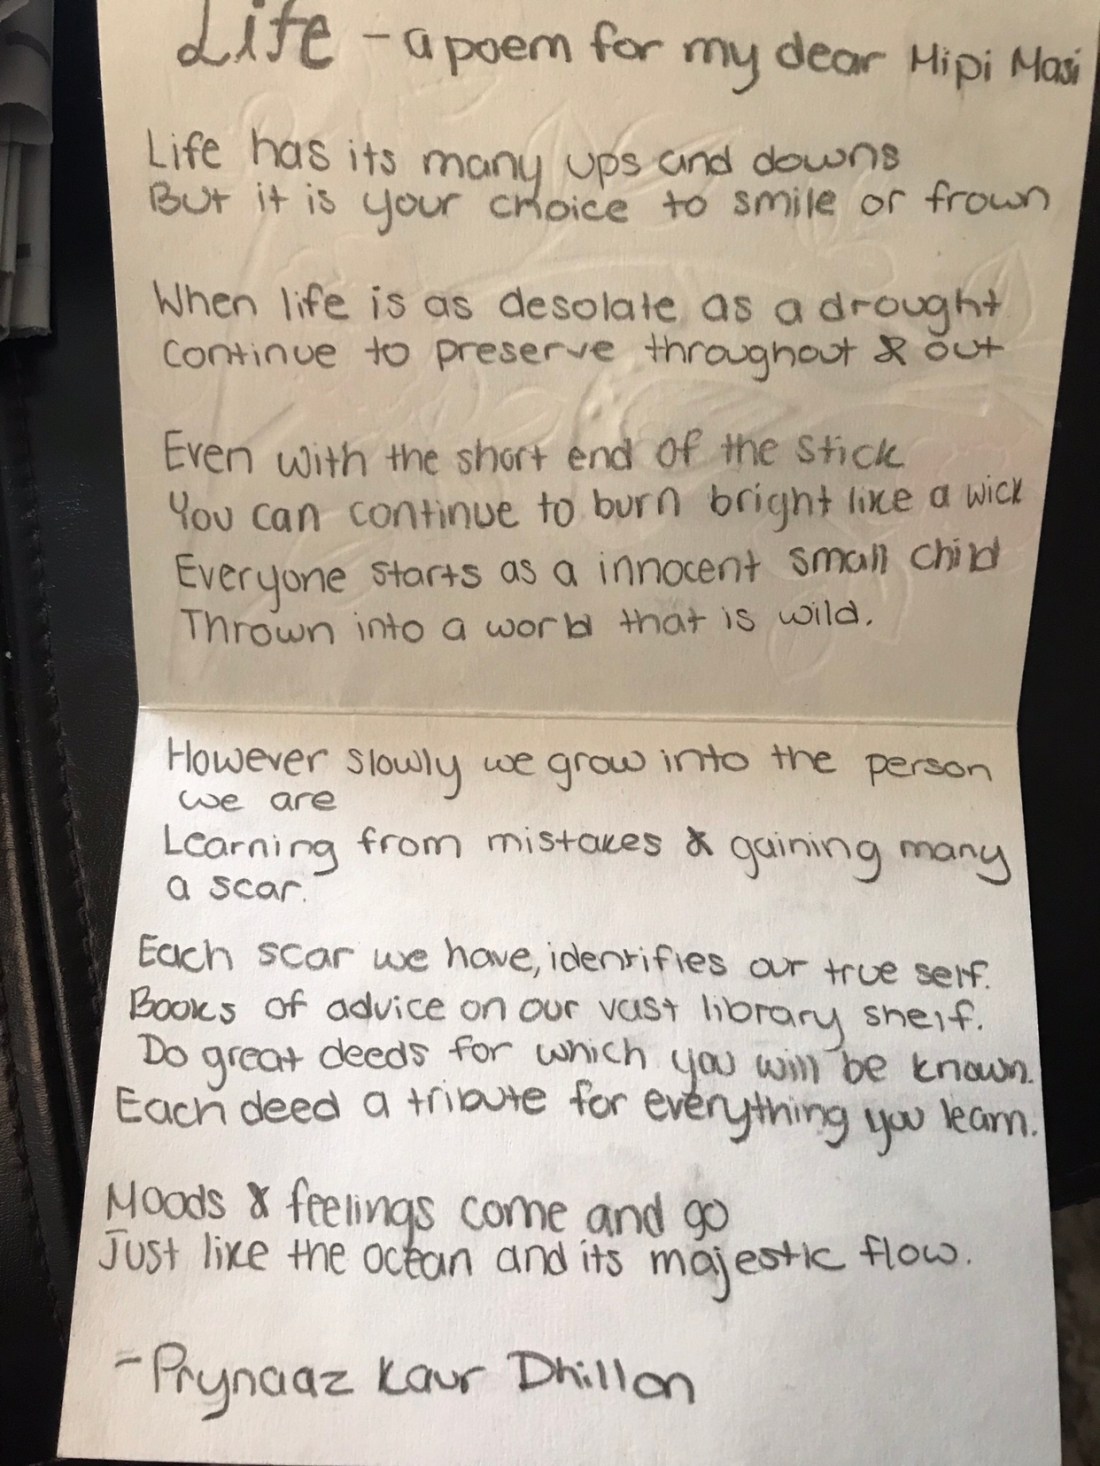 Life - a poem for my dear Mipi Masi
Life has its many ups and downs
But it is your choice to smile or frown
When life is as desolate as a drought
Continue to preserve throughout & out
Even with the short end of the stick
You can continue to burn bright like a wick
Everyone starts as a innocent small child
Thrown into a world that is wild.
However slowly we grow into the person
we are
Learning from mistakes & gaining many
a scar.
Each scar we have, identifies our true self.
Books of advice on our vast library shelf.
Do great deeds for which you will be known.
Each deed a tribute for everything you learn.
Moods & feelings come and go
Just like the ocean and its majestic flow.
- Prynaaz Kaur Dhillon